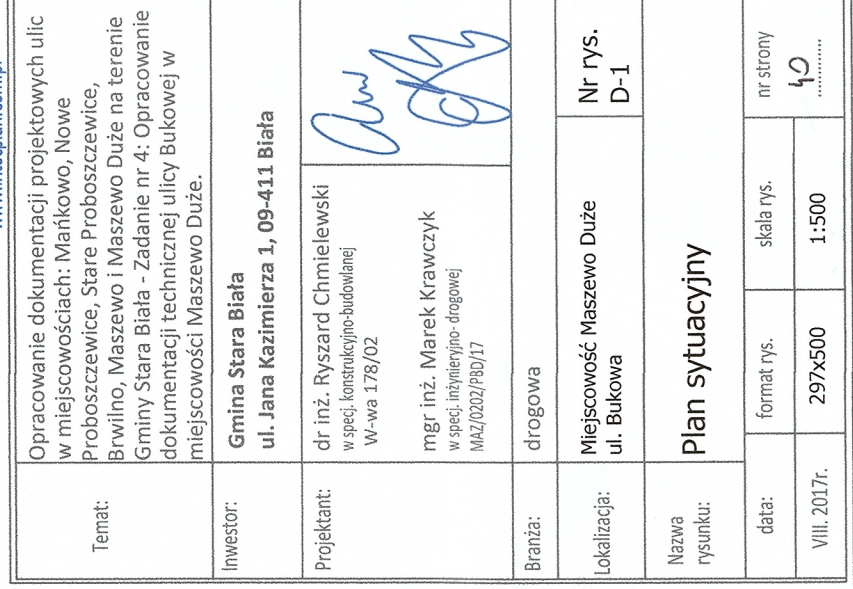 Temat:
Opracowanie dokumentacji projektowych ulic
w miejscowościach: Mańkowo, Nowe
Proboszczewice, Stare Proboszczewice,
Brwilno, Maszewo i Maszewo Duże na terenie
Gminy Stara Biała - Zadanie nr 4: Opracowanie
dokumentacji technicznej ulicy Bukowej w
miejscowości Maszewo Duże.
Inwestor:
Gmina Stara Biała
ul. Jana Kazimierza 1, 09-411 Biała
Projektant:
dr inż. Ryszard Chmielewski
w specj. konstrukcyjno-budowlanej
W-wa 178/02
mgr inż. Marek Krawczyk
w specj. inżynieryjno- drogowej
MAZ/0202/PBD/17
Branża:
drogowa
Lokalizacja:
Miejscowość Maszewo Duże
ul. Bukowa
Nr rys.
D-1
Nazwa
rysunku:
Plan sytuacyjny
data:
format rys.
skala rys.
nr strony
VIII. 2017r.
297x500
1:500
40